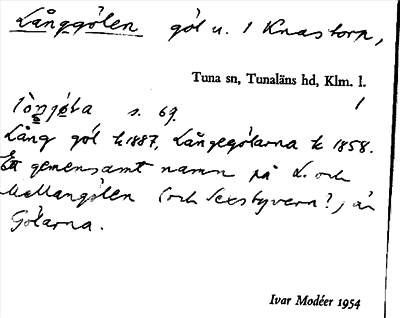 Långgölen göl n. 1 Knastorp,
Tuna sn, Tunaläns hd, Klm. l.
1
s. 69
Lång göl k 1887, Långegölarna k 1858.
Ett gemensamt namn på L. och
Mellangölen (och Sexstyvern?) är
Gölarna.
Ivar Modéer 1954